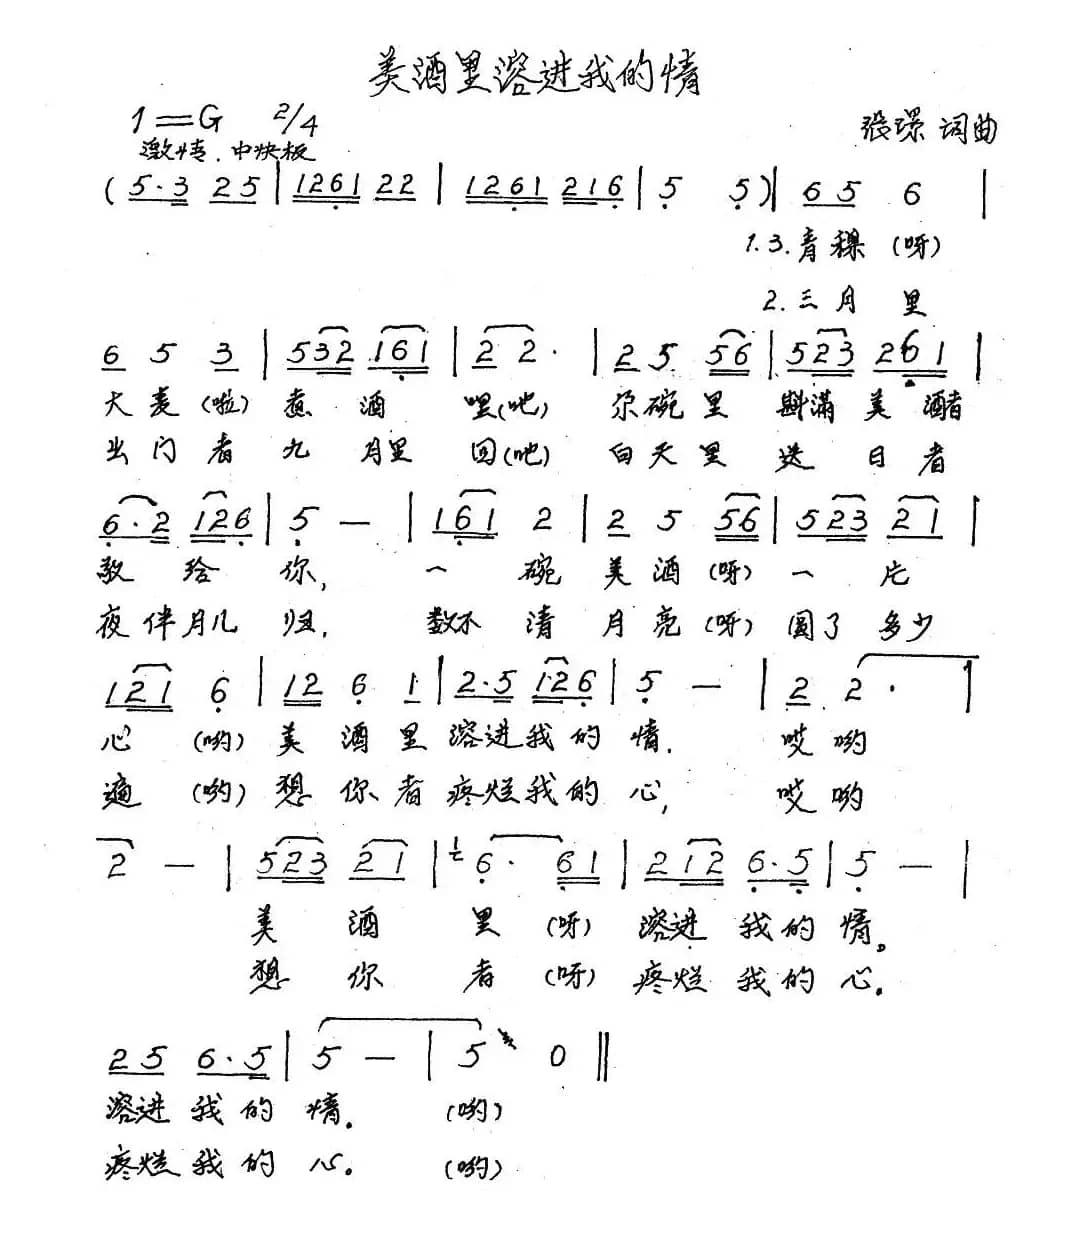 美酒里溶进我的情
1=G 2/4
张璟 词曲
激情.中快板
(5·3 25 | 1261 22 | 1261 216 | 5 5) | 65 6 |
1.3.青稞(呀)
2.三月里
6 5 3 | 532 161 | 2 2· | 25 56 | 523 261 |
大麦(啦)煮酒嘿(吔)尕碗里斟满美酒者
出门者九月里回(吔)白天里送日者
6·2 126 | 5 — | 161 2 | 2 5 56 | 523 21 |
敬给你,一碗美酒(呀)一片
夜伴月儿归,数不清月亮(呀)圆了多少
121 6 | 12 6 1 | 2·5 126 | 5 — | 2 2· |
心(哟)美酒里溶进我的情.哎哟
遍(哟)想你者疼烂我的心,哎哟
2 — | 523 21 | 6· 61 | 212 6·5 | 5 — |
美酒里(呀)溶进我的情。
想你者(呀)疼烂我的心.
25 6·5 | 5 — | 5 0 ||
溶进我的情.(哟)
疼烂我的心.(哟)